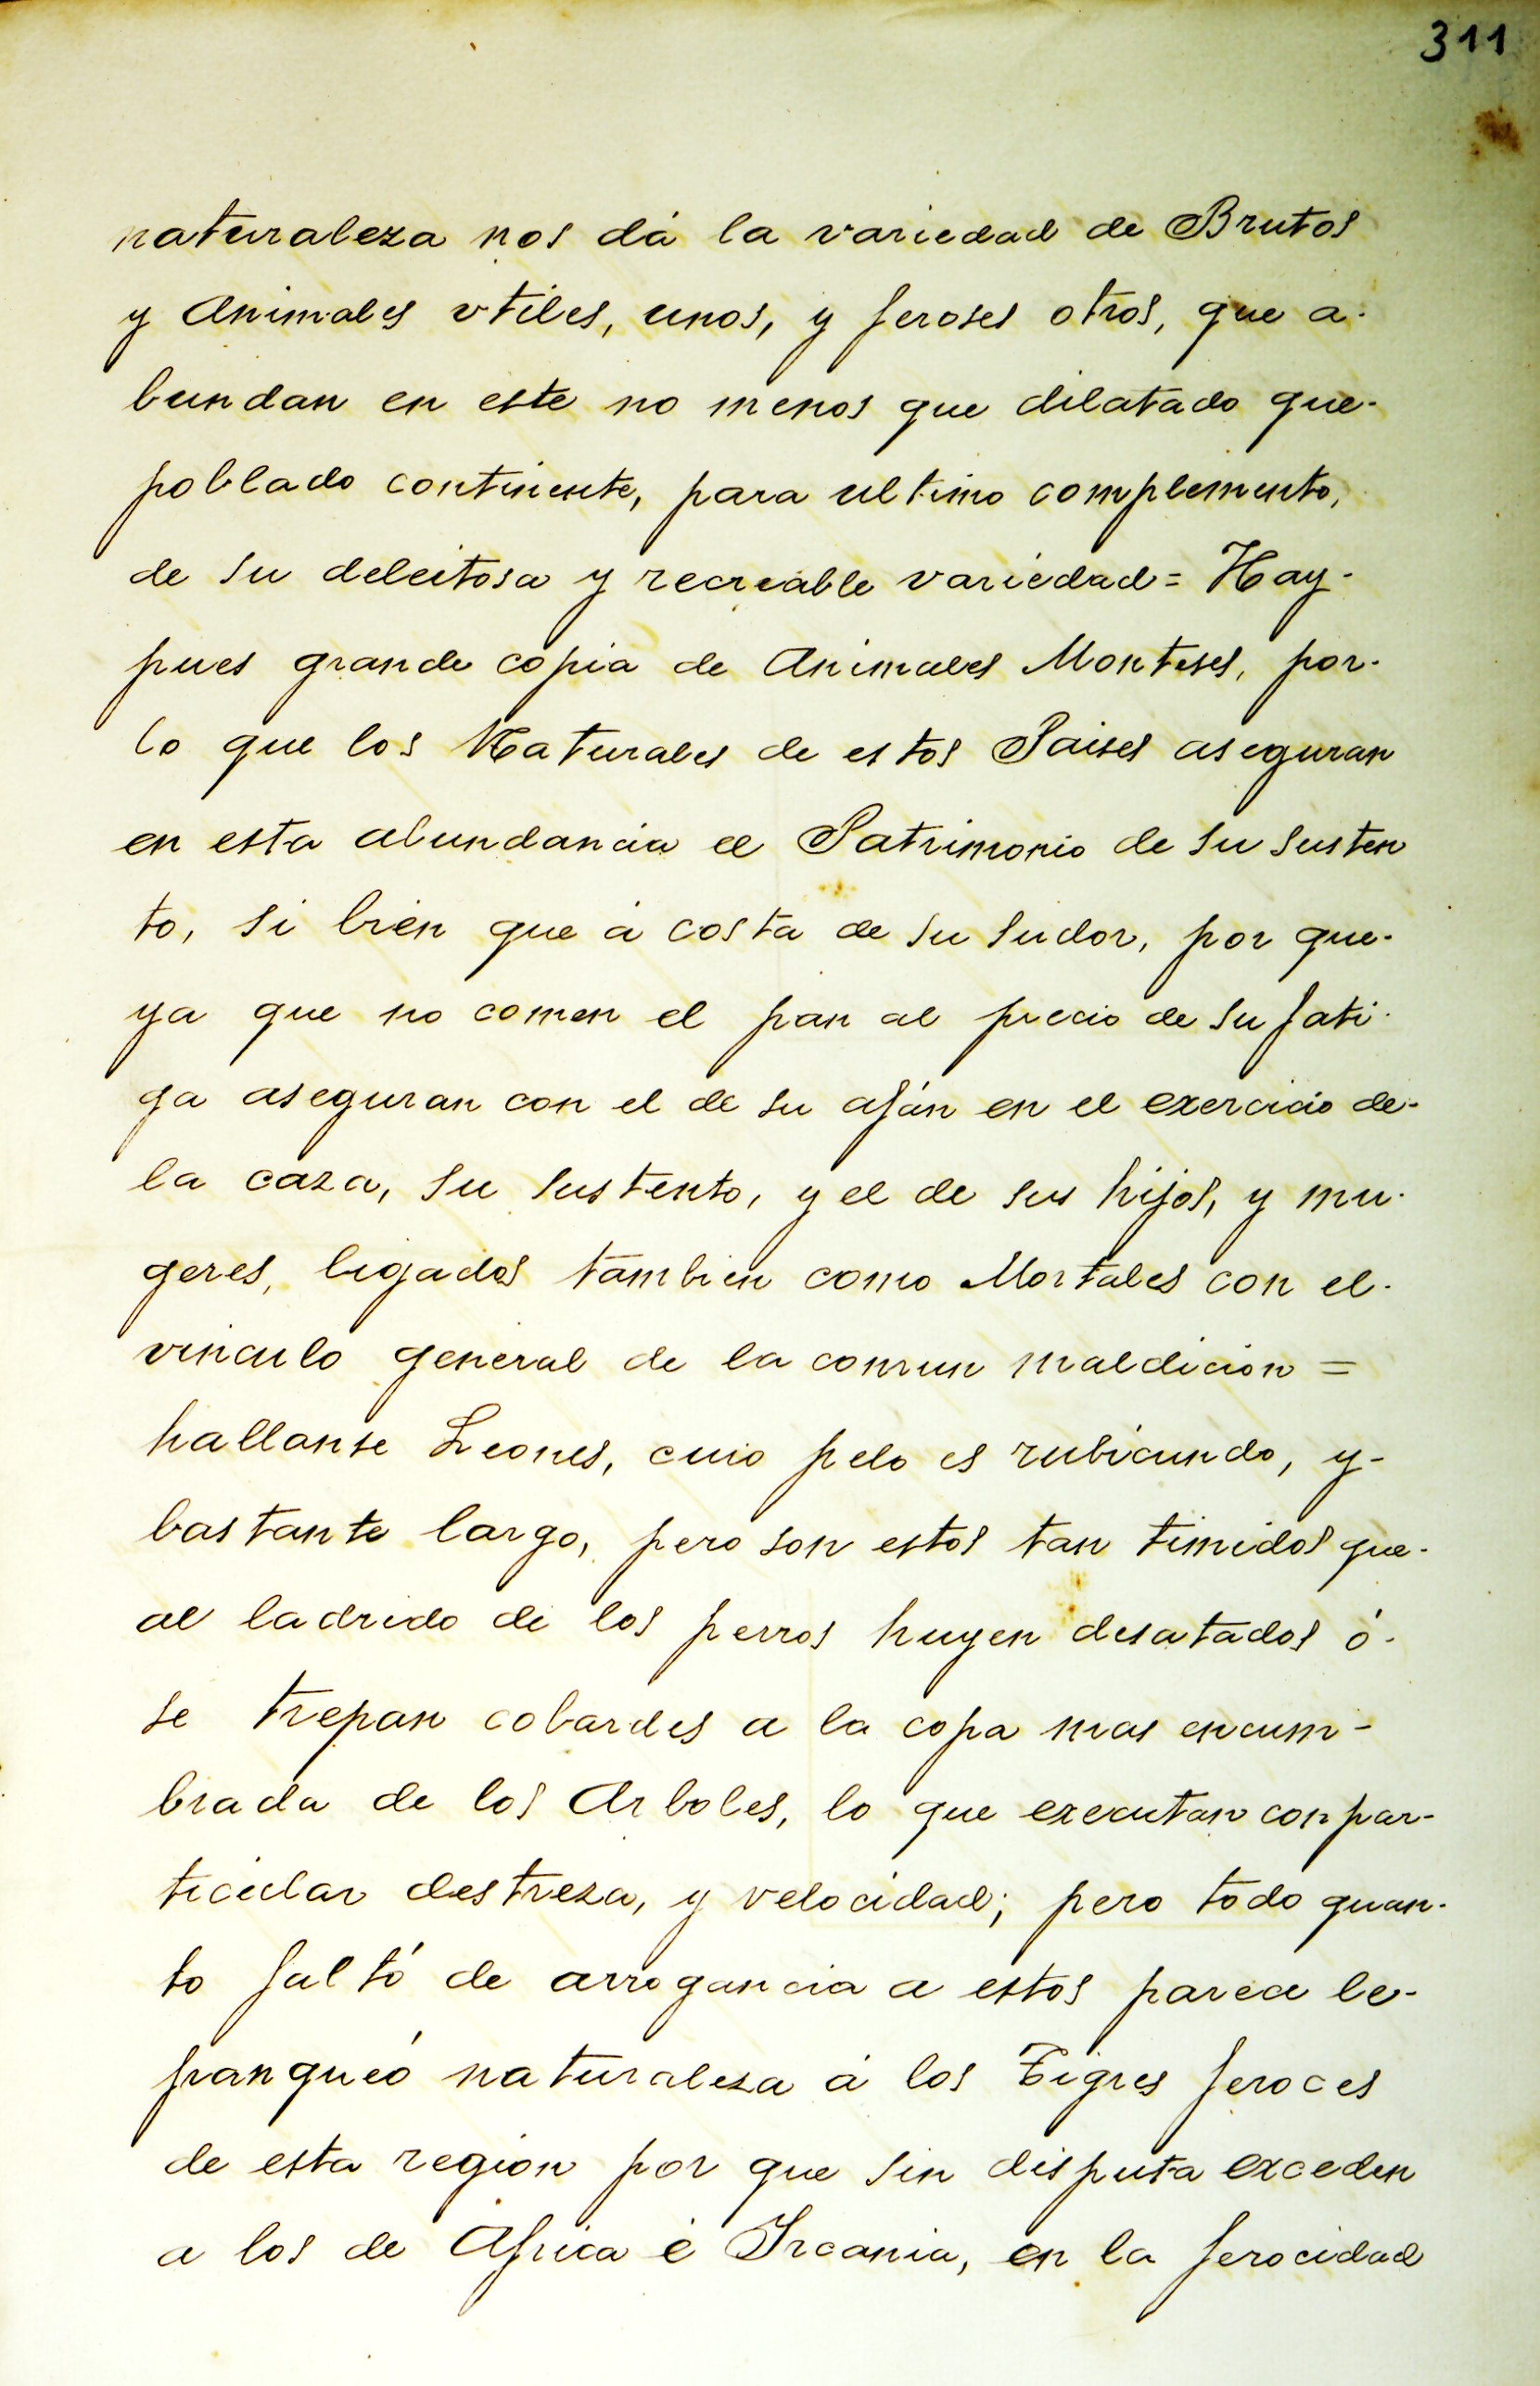 311
naturaleza nos dá la variedad de Brutos
y Animales vtiles, unos, y feroses otros, que a-
bundan en este no menos que dilatado que-
poblado continente, para ultimo complemento,
de su deleitosa y recreable variedad = Hay-
pues grande copia de Animales Monteses, por-
lo que los Naturales de estos Paises aseguran
en esta abundancia el Patrimonio de su susten
to, si bien que á costa de su sudor, por que-
ya que no comen el pan al precio de su fati-
ga aseguran con el de su afán en el exercicio de-
la caza, su sustento, y el de sus hijos, y mu-
geres, ligados tambien como Mortales con el-
vinculo general de la comun maldicion =
hallanse Leones, cuio pelo es rubicundo, y-
bastante largo, pero son estos tan timidos que-
al ladrido de los perros huyen desatados ó-
se trepan cobardes a la copa mas encum-
brada de los Arboles, lo que executan con par-
ticular destreza, y velocidad; pero todo quan-
to faltó de arrogancia a estos parece le-
franqueó naturaleza á los Tigres feroces
de esta region por que sin disputa exceden
a los de Africa é Ircania, en la ferocidad